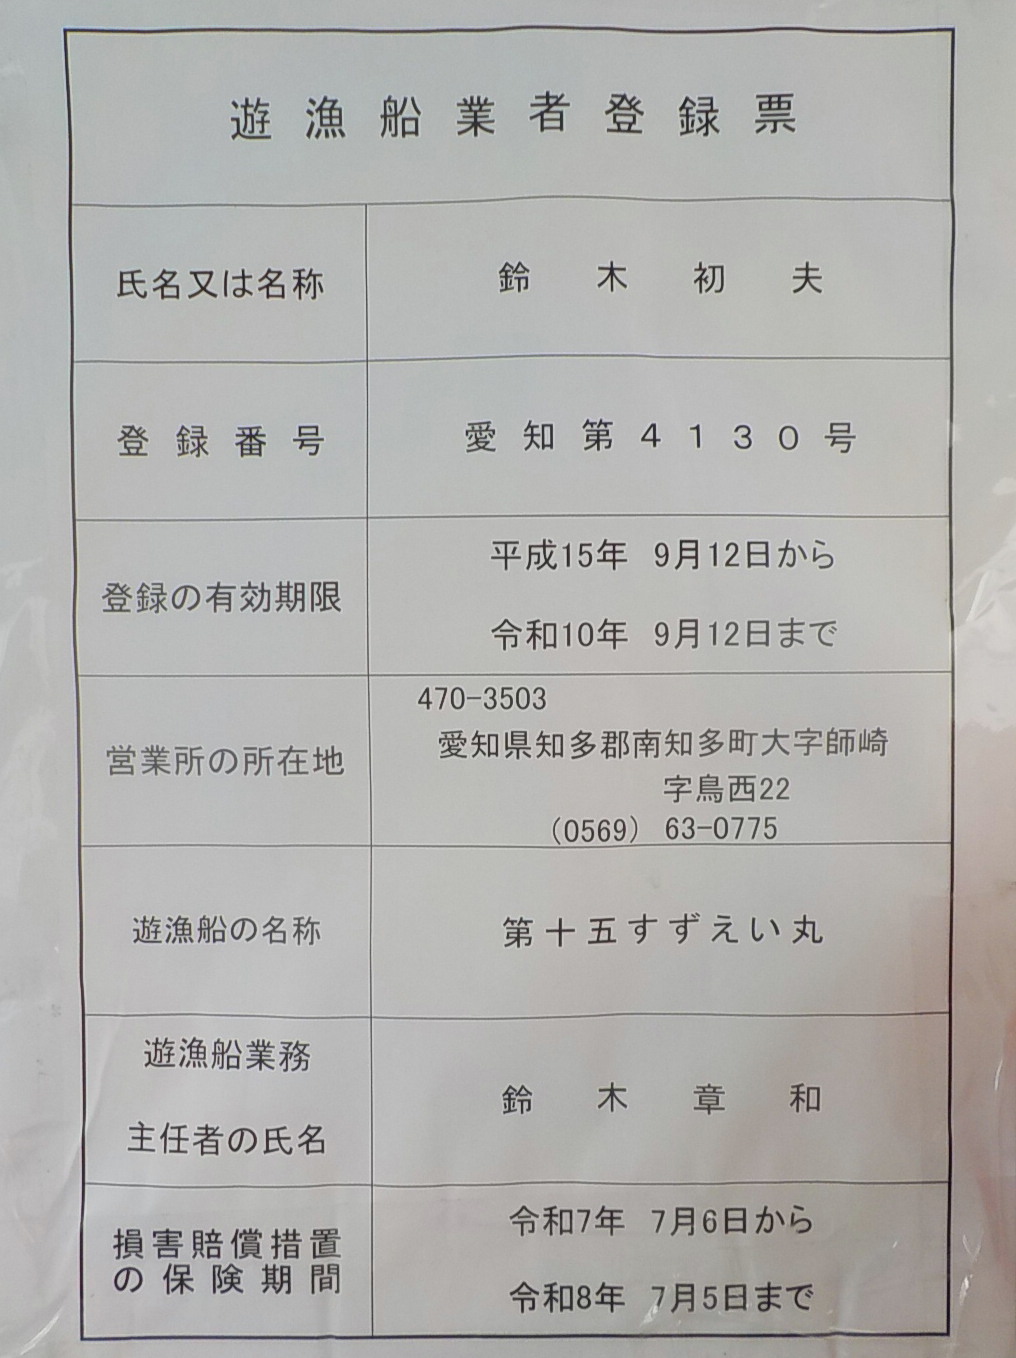 遊漁船業者登録票
氏名又は名称
鈴木初夫
登録番号
愛知第4130号
登録の有効期限
平成15年 9月12日から
令和10年 9月12日まで
営業所の所在地
470-3503
愛知県知多郡南知多町大字師崎
字鳥西22
(0569) 63-0775
遊漁船の名称
第十五すずえい丸
遊漁船業務
主任者の氏名
鈴木章和
損害賠償措置
の保険期間
令和7年 7月6日から
令和8年 7月5日まで